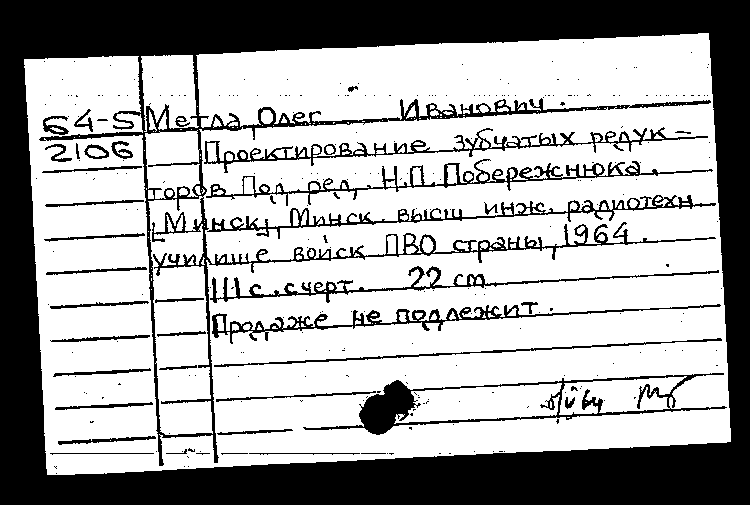 64-5 Метла, Олег Иванович.
2106 Проектирование зубчатых редук-
торов. Под. ред. Н.П. Побережнюка.
[Минск], Минск. высш инж. радиотехн
училище войск ПВО страны, 1964.
111 с. с черт. 22 cm.
Продаже не подлежит.